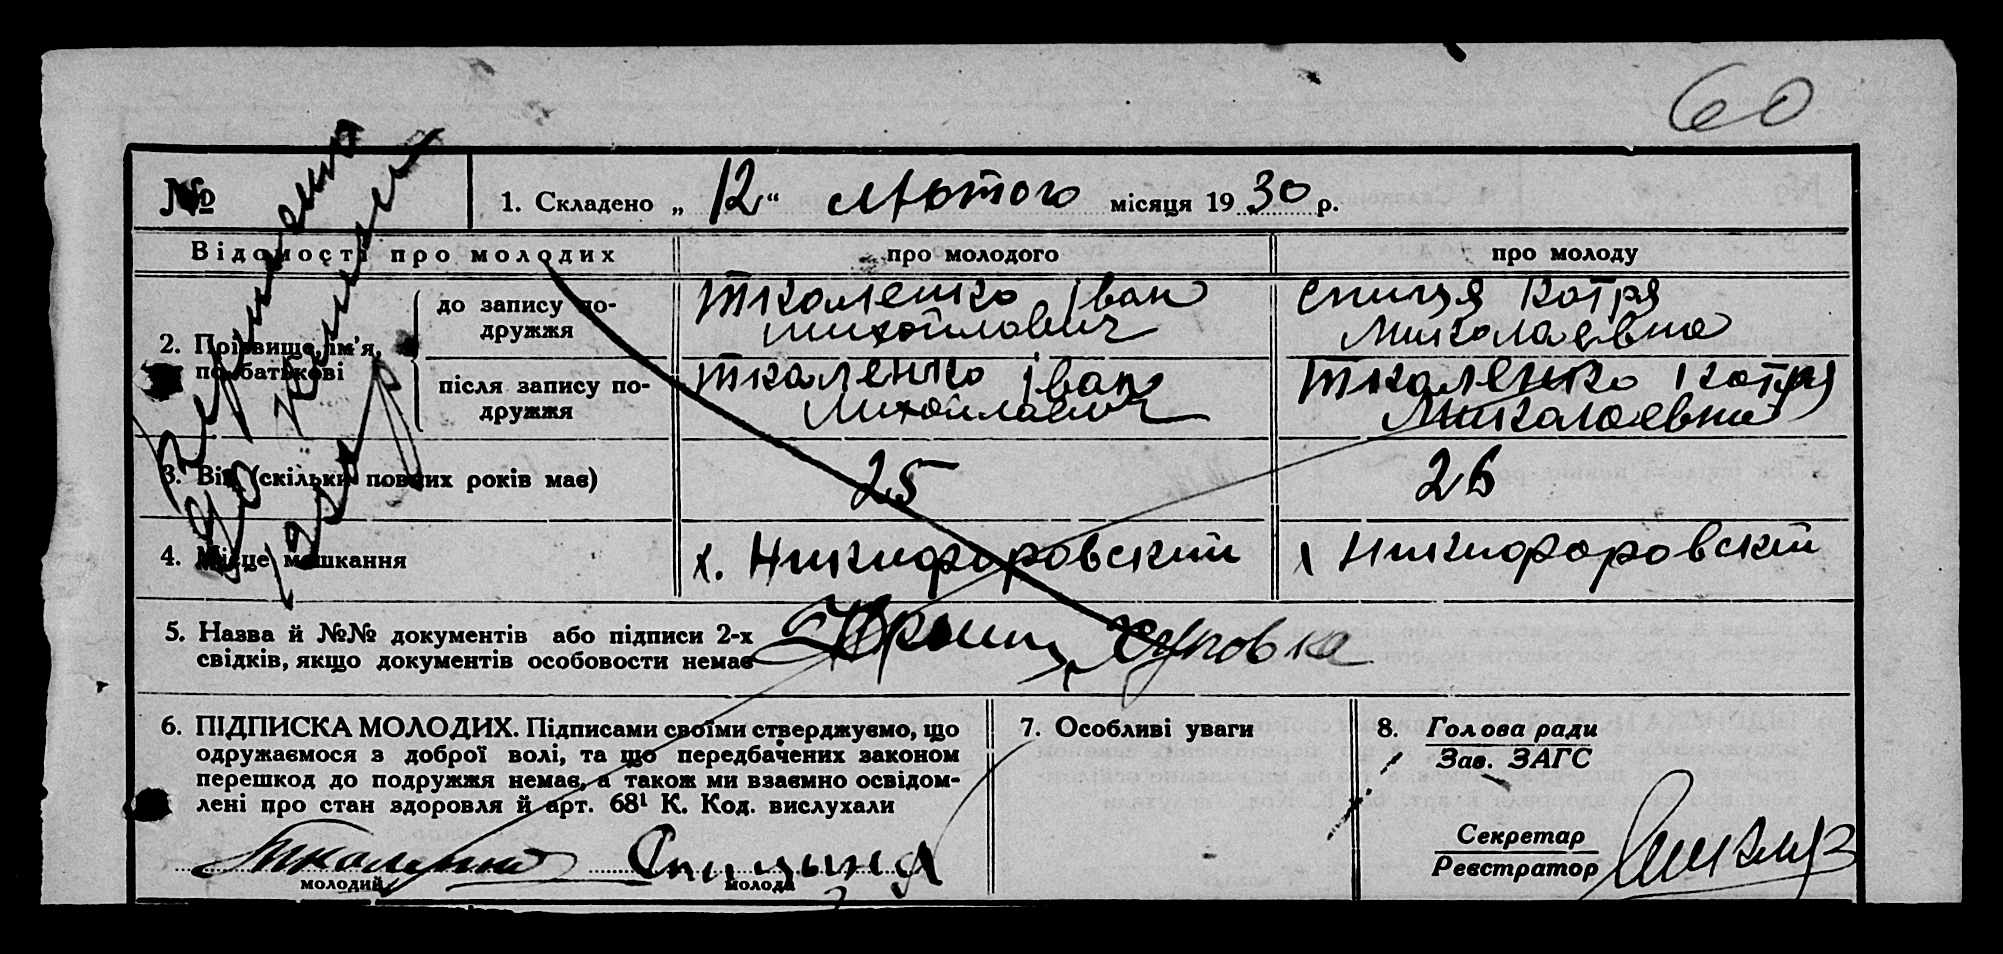 60
№
1. Складено „ 12 “ лютого місяця 19 30 р.
Відомості про молодих
про молодого
про молоду
2. Прізвище, ім'я, по батькові
до запису по-
дружжя
Ткаленко Іван
Михойлович
Спиця Котря
Миколаевна
після запису по-
дружжя
Ткаленко Іван
Михойлович
Ткаленко Котря
Миколаевна
3. Вік (скільки повних років має)
25
26
4. Місце мешкання
х. Никифоровский
х Никифоровский
5. Назва й №№ документів або підписи 2-х
свідків, якщо документів особовости немає
6. ПІДПИСКА МОЛОДИХ. Підписами своїми стверджуємо, що
одружаємося з доброї волі, та що передбачених законом
перешкод до подружжя немає, а також ми взаємно освідом-
лені про стан здоровля й арт. 68¹ К. Код. вислухали
Ткаленко
молодий
молода
7. Особливі уваги
8. Голова ради
Зав. ЗАГС
Секретар
Реєстратор